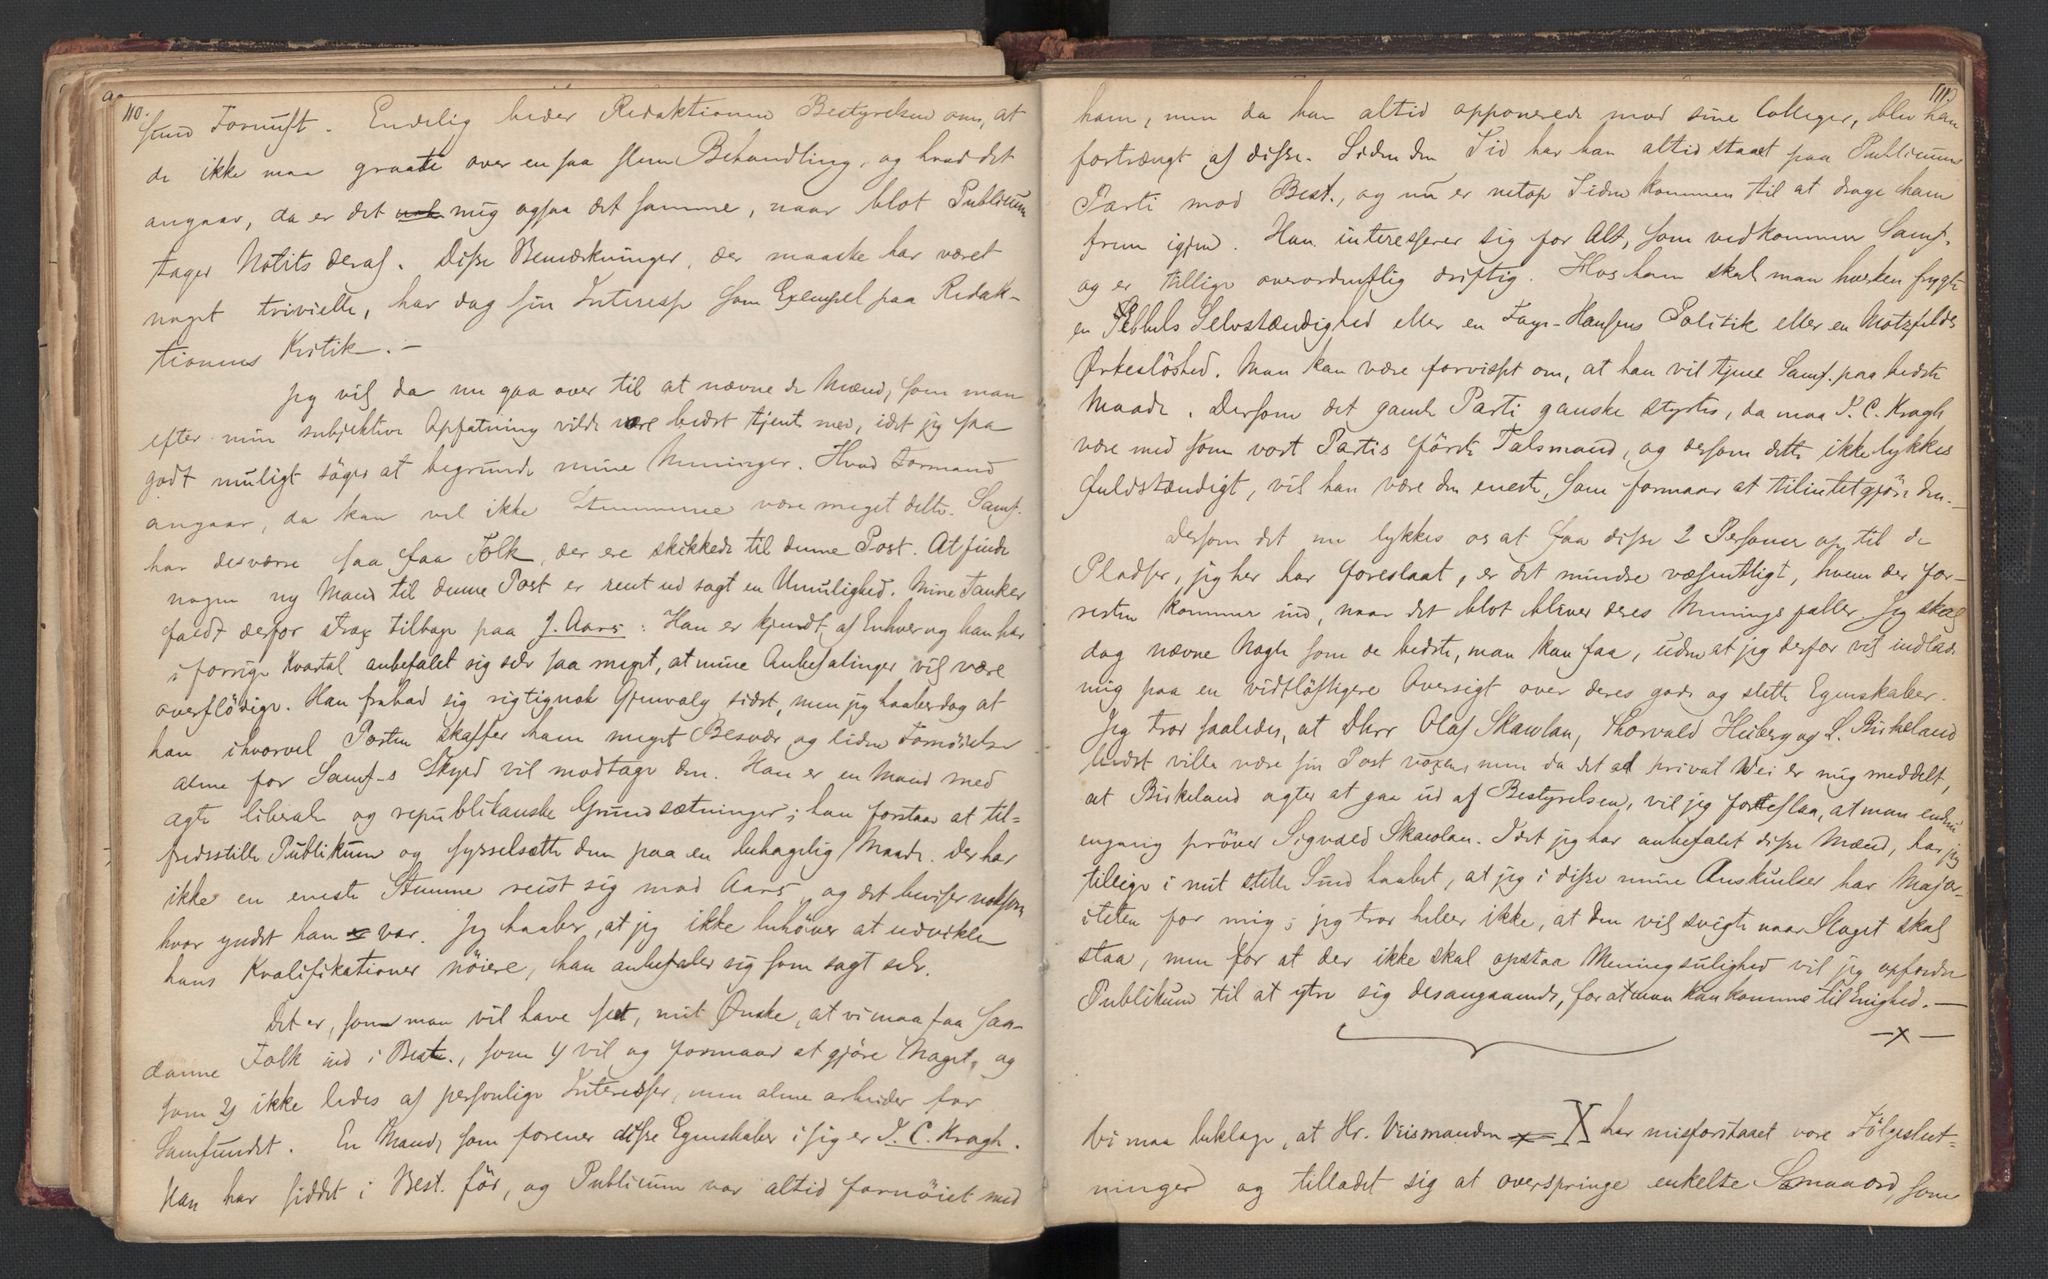 110.
sund Fornuft. Endelig beder Redaktionen Bestyrelsen om, at
de ikke maa graate over en saa slem Behandling, og hvad det
angaar, da er det mig ogsaa det samme, naar blot Publicum
tager Notits deraf. Disse Bemærkninger, der maaske har været
noget trivielle, har dog sin Interesse som Exempel paa Redak-
tionens Kritik. —
Jeg vil da nu gaa over til at nævne de Mænd, som man
efter min subjektive Opfatning vilde være bedst tjent med, idet jeg saa
godt muligt söger at begrunde mine Meninger. Hvad Formand
angaar, da kan vel ikke Stemmerne være meget delte. Samf.
har desværre saa faa Folk, der ere skikkede til denne Post. At finde
nogen ny Mand til denne Post er rent ud sagt en Umulighed. Mine Tanker
faldt derfor strax tilbage paa J. Aars. Han er kjendt af Enhver og han har
i forrige Kvartal anbefalet sig selv saa meget, at mine Anbefalinger vil være
overflödige. Han frabad sig rigtignok Gjenvalg sidst, men jeg haaber dog at
han ihvorvel Posten skaffer ham meget Besvær og liden Fornöielse
alene for Samf-s Skyld vil modtage den. Han er en Mand med
ægte liberale og republikanske Grundsætninger; han forstaar at til-
fredsstille Publikum og sysselsætte dem paa en behagelig Maade. Der har
ikke en eneste Stemme reist sig mod Aars, og det beviser noksom
hvor yndet han var. Jeg haaber, at jeg ikke behöver at udvikle
hans Kvalifikationer nöiere, han anbefaler sig som sagt selv.
Det er, som man vil have seet, mit Önske, at vi maa faa saa-
danne Folk ind i Best., som 1) vil og formaar at gjöre Noget, og
som 2) ikke ledes af personlige Interesser, men alene arbeider for
Samfundet. En Mand, som forener disse Egenskaber i sig er P. C. Kragh.
Han har siddet i Best. för, og Publicum var altid fornöiet med
111.
ham, men da han altid opponerede mod sine Colleger, blev han
fortrængt af disse. Siden den Tid har han altid staaet paa Publicums
Parti mod Best., og nu er netop Tiden kommen til at drage ham
frem igjen. Han interesserer sig for Alt, som vedkommer Samf.
og er tillige overordentlig driftig. Hos ham skal man hverken frygte
en Sebbels Selvstændighed eller en Faye-Hansens Politik eller en Motzfeldts
Örkeslöshed. Man kan være forvisset om, at han vil tjene Samf. paa bedste
Maade. Dersom det gamle Parti ganske styrtes, da maa P. C. Kragh
være med som vort Partis förste Talsmand, og dersom dette ikke lykkes
fuldstændigt, vil han være den eneste, som formaar at tilintetgjöre den. —
Dersom det nu lykkes os at faa disse 2 Personer op til de
Pladser, jeg her har foreslaat, er det mindre væsentligt, hvem der for-
resten kommer ind, naar det blot bliver deres Meningsfæller. Jeg skal
dog nævne Nogle som de bedste, man kan faa, uden at jeg derfor vil indlade
mig paa en vidtlöftigere Oversigt over deres gode og slette Egenskaber.
Jeg tror saaledes, at Dhrr Olaf Skavlan, Thorvald Heiberg og L. Birkeland
bedst ville være sin Post voxen, men da det ad privat Vei er mig meddelt,
at Birkeland agter at gaa ud af Bestyrelsen, vil jeg foreslaa, at man endnu
engang pröver Sigvald Skavlan. Idet jeg har anbefalet disse Mænd, har jeg
tillige i mit stille Sind haabet, at jeg i disse mine Anskuelser har Major-
iteten for mig; jeg tror heller ikke, at den vil svigte naar Slaget skal
staa, men for at der ikke skal opstaa Meningsulighed vil jeg opfordre
Publikum til at ytre sig desangaaende, for at man kan komme til Enighed. —
—x—
Vi maa beklage, at Hr. Viismanden X har misforstaaet vore Fölgeslut-
ninger og tilladet sig at overspringe enkelte Smaaord, som